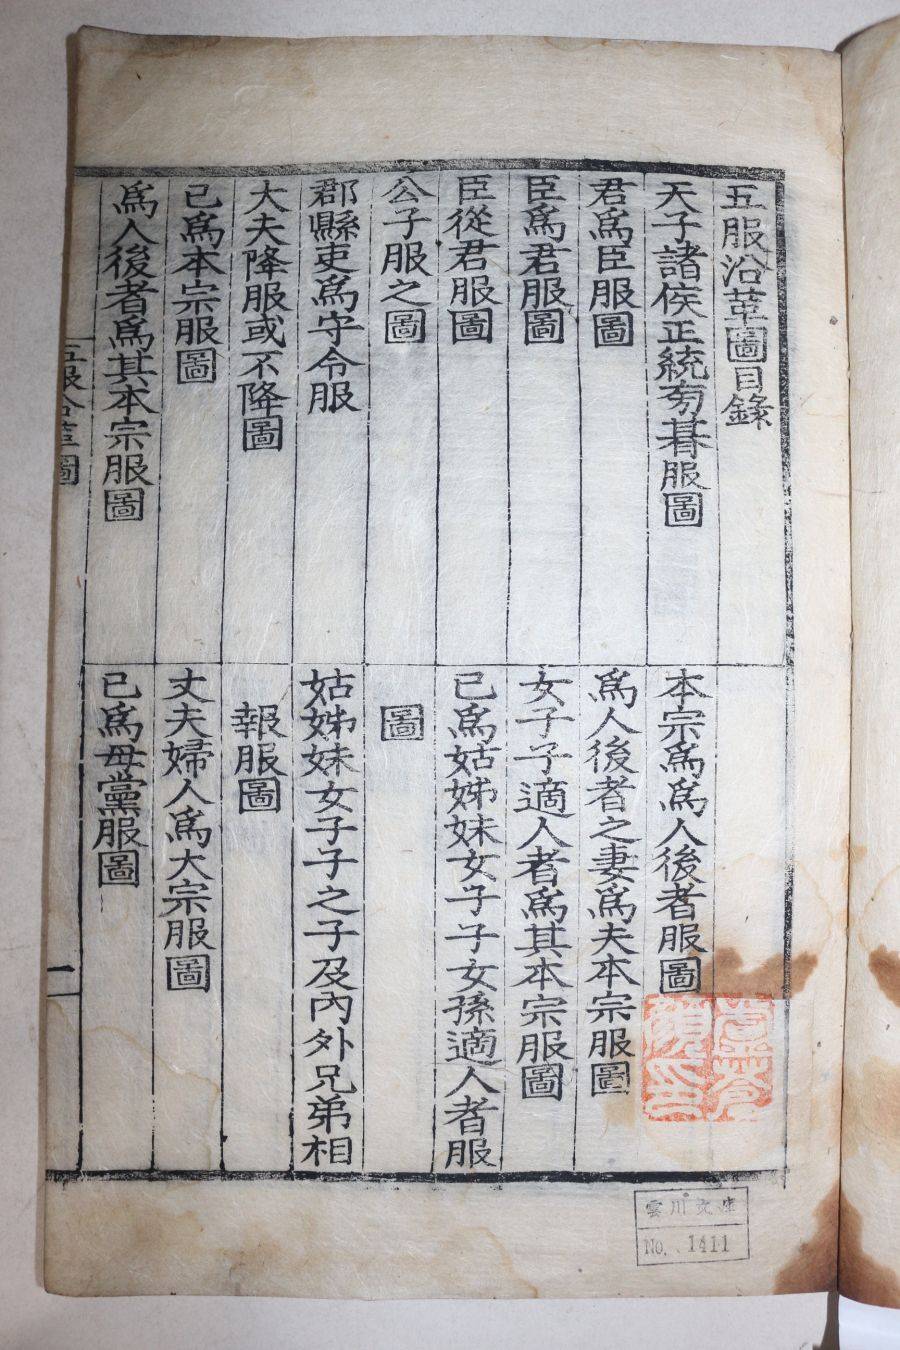 五服沿革圖目錄
天子諸侯正統旁朞服圖
君爲臣服圖
臣爲君服圖
臣從君服圖
公子服之圖
郡縣吏爲守令服
大夫降服或不降圖
己爲本宗服圖
爲人後者爲其本宗服圖
本宗爲爲人後者服圖
爲人後者之妻爲夫本宗服圖
女子子適人者爲其本宗服圖
己爲姑姊妹女子子女孫適人者服
圖
姑姊妹女子子之子及內外兄弟相
報服圖
丈夫婦人爲大宗服圖
己爲母黨服圖
五服沿革圖
一
雲川文庫
No. 1411